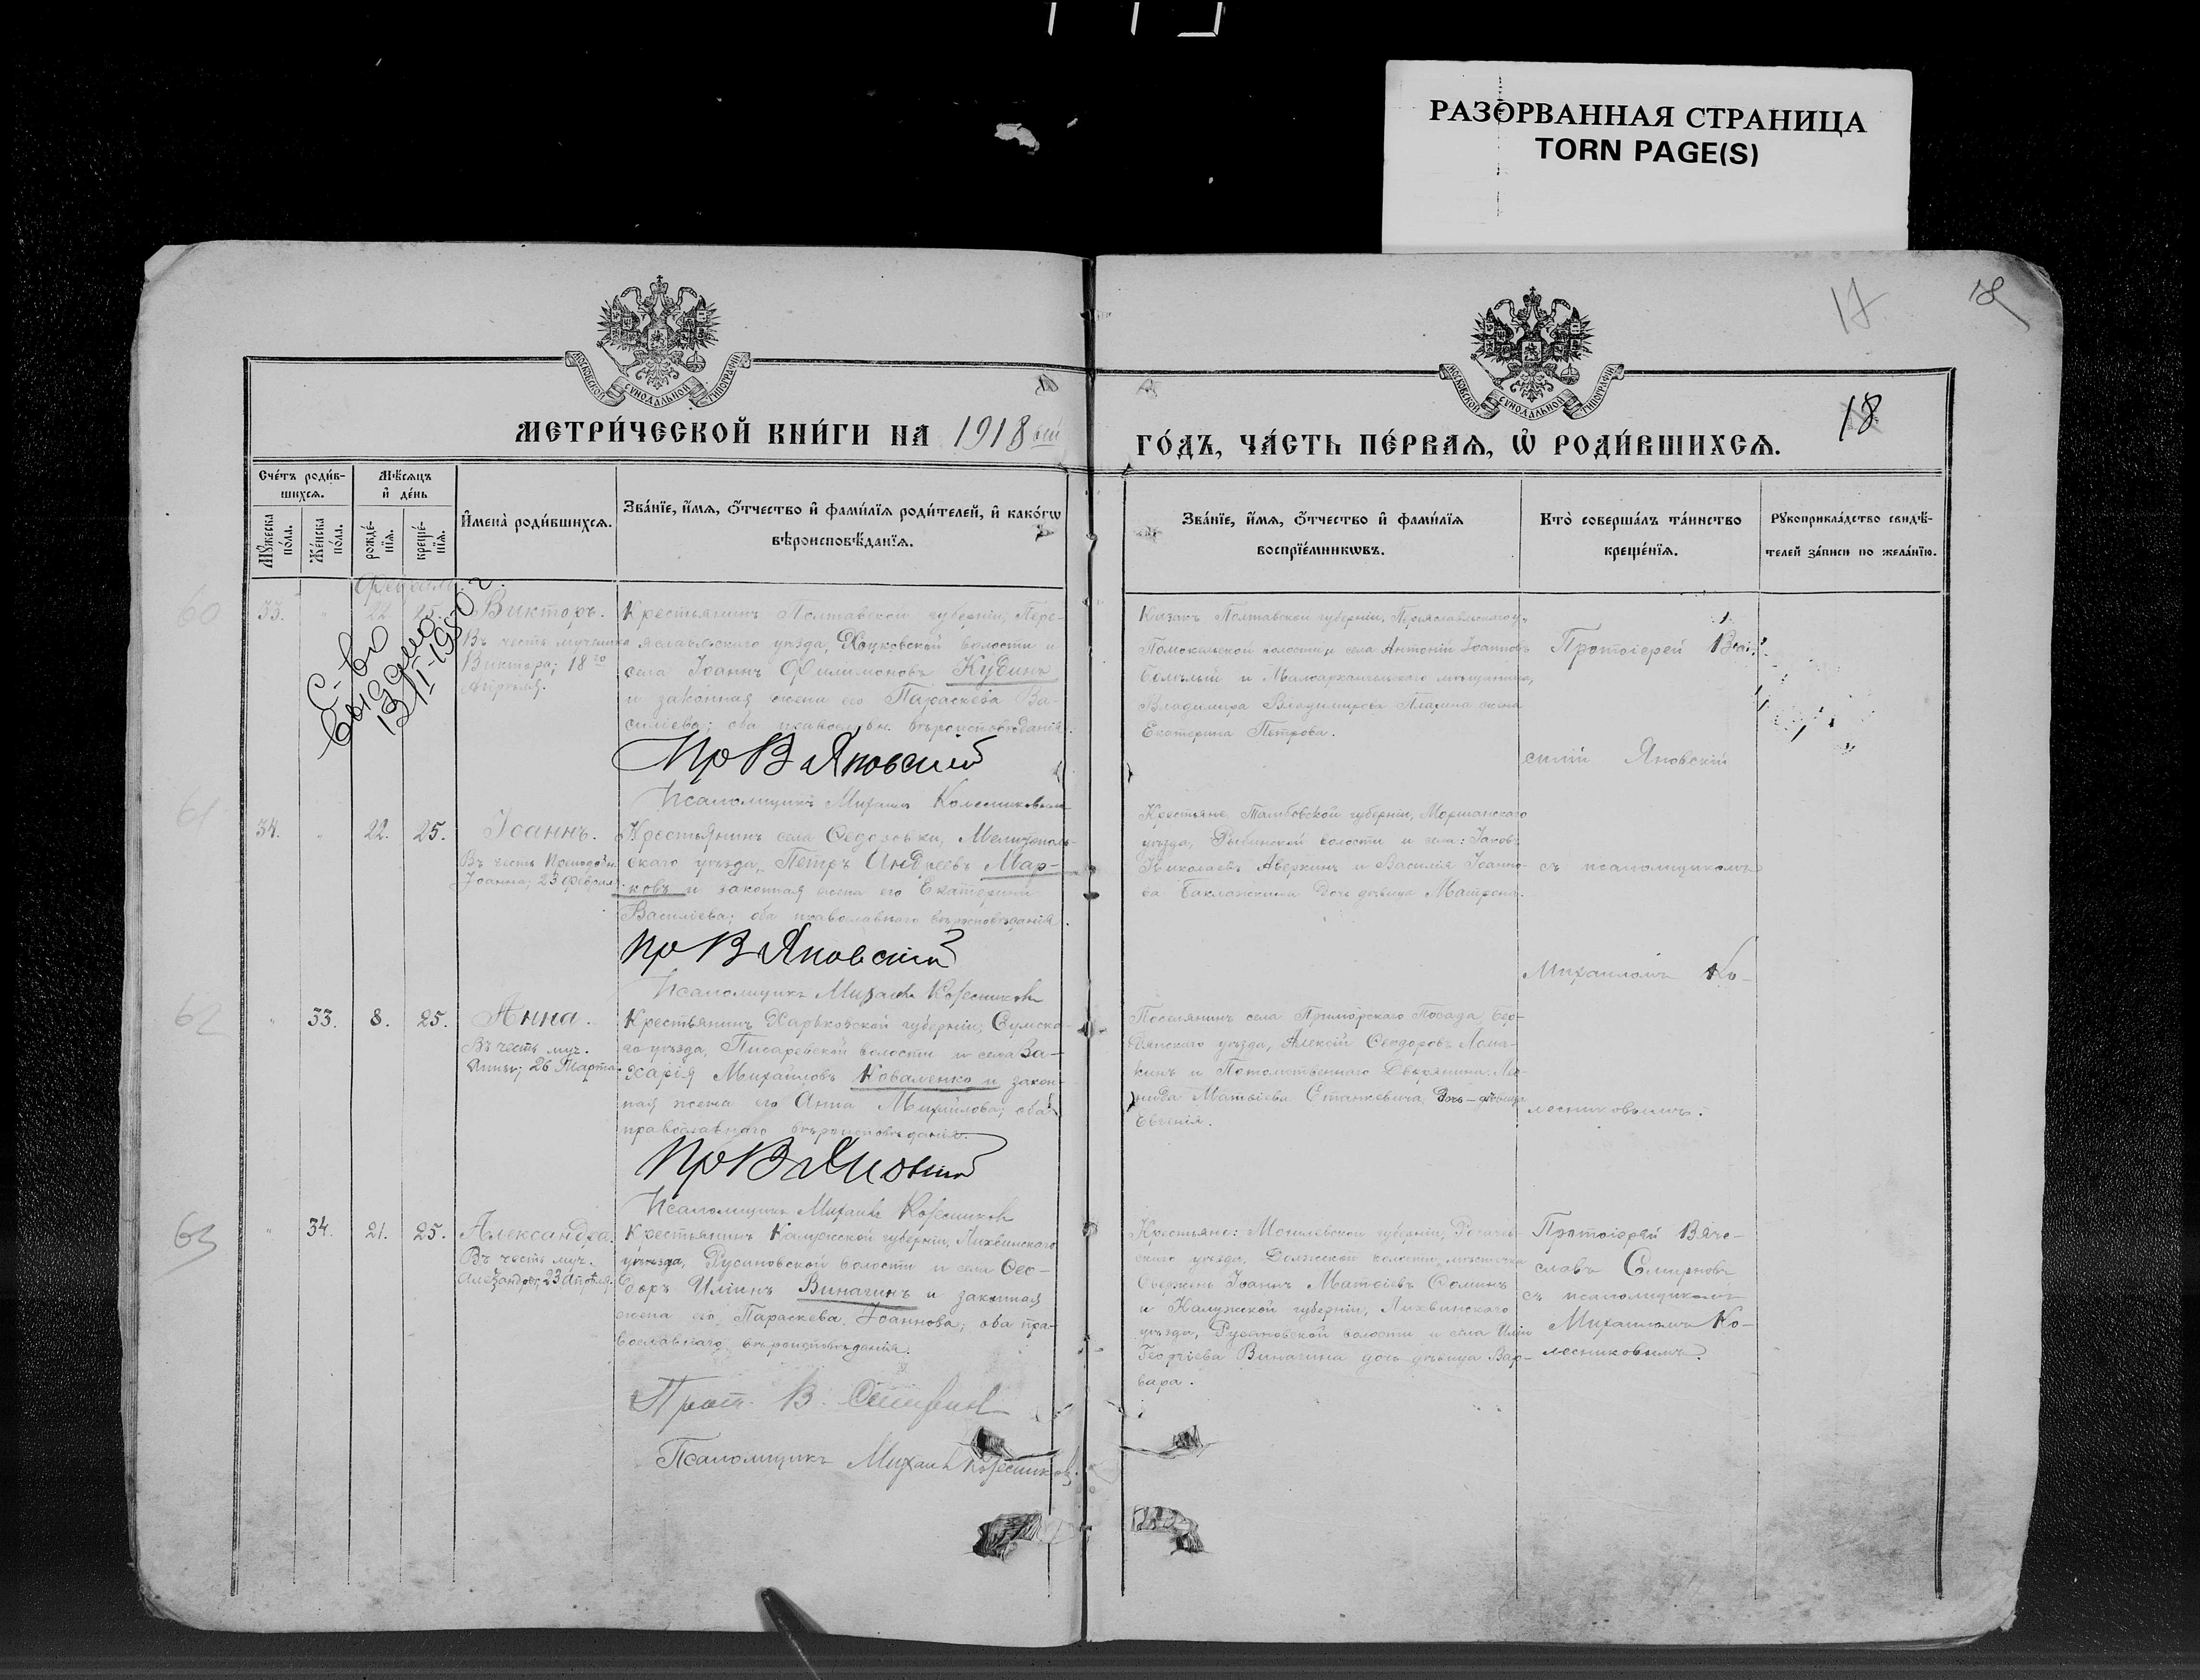 РАЗОРВАННАЯ СТРАНИЦА
TORN PAGE(S)
17
18
МОСКОВСКОЙ СѴНОДАЛЬНОЙ ТИПОГРАФІИ
МОСКОВСКОЙ СѴНОДАЛЬНОЙ ТИПОГРАФІИ
18
МЕТРИ́ЧЕСКОЙ КНИ́ГИ НА 1918 ый
ГО́ДЪ, ЧА́СТЬ ПЕ́РВАѦ, Ѡ҆ РОДИ́ВШИХСѦ.
Сче́тъ роди́в-
шихсѧ.
Мѣ́сѧцъ
и҆ де́нь
Мꙋ́жеска
по́ла.
Же́нска
по́ла.
рожде́-
нїѧ.
креще́-
нїѧ.
И҆мена̀ роди́вшихсѧ.
Зва́нїе, и҆́мѧ, ѻ҆́тчество и҆ фами́лїѧ роди́телей, и҆ како́гѡ
вѣроисповѣ́данїѧ.
Зва́нїе, и҆́мѧ, ѻ҆́тчество и҆ фами́лїѧ
воспрїе́мникѡвъ.
Кто̀ соверша́лъ та́инство
креще́нїѧ.
Рꙋкоприкла́дство свидѣ́-
телей за́писи по жела́нїю.
60
33.
22
25.
С-во
выдано
Викторъ.
Въ честь мученика
Виктора; 18 го
Апрѣля.
Крестьянинъ Полтавской губерніи, Пере-
яславльскаго уѣзда, Хоцковской волости и
села Іоаннъ Филимоновъ Кубинъ
и законная жена его Параскева Ва-
силіева; оба православн. вѣроисповѣданія.
Пр В Яновскій
Псаломщикъ Михаилъ Колесниковъ
Козакъ Полтавской губерніи, Переяславльскаго у.,
волости и села Антоній Іоанновъ
и Малоархангельскаго мѣщанина,
Владимира Владимирова жена
Екатерина Петрова.
Протоіерей Ва-
силій Яновскій
61
34.
22.
25.
Іоаннъ.
Въ честь Преподобн.
Іоанна; 23 Февраля.
Крестьянинъ села Ѳедоровки, Мелитополь-
скаго уѣзда, Петръ Андреевъ Мар-
ковъ и законная жена его Екатерина
Василіева; оба православнаго вѣроисповѣданія.
Пр В Яновскій
Псаломщикъ Михаилъ Колесниковъ
Крестьяне Тамбовской губерніи, Моршанскаго
уѣзда, Рыбинской волости и села: Іаковъ
Николаевъ Аверкинъ и Василія Іоанно-
ва дочь дѣвица Матрона.
съ псаломщикомъ
Михаиломъ Ко-
лесниковымъ.
62
33.
8.
25.
Анна.
Въ честь муч.
Анны; 26 Марта.
Крестьянинъ Харьковской губерніи, Сумска-
го уѣзда, Писаревской волости и села За-
харія Михайловъ Коваленко и закон-
ная жена его Анна Михайлова; оба
православнаго вѣроисповѣданія.
Пр В Яновскій
Псаломщикъ Михаилъ Колесниковъ
Поселянинъ села Приморскаго Посада, Бер-
дянскаго уѣзда, Алексій Ѳеодоровъ Лома-
кинъ и Потомственнаго Дворянина Лео-
нида Матѳіева Станкевича дочь-дѣвица
Евгенія.
63
34.
21.
25.
Александра.
Въ честь муч.
Александры, 23 Апрѣля.
Крестьянинъ Калужской губерніи, Лихвинскаго
уѣзда, Русановской волости и села Ѳео-
доръ Иліинъ Виначинъ и законная
жена его Параскева Іоаннова; оба пра-
вославнаго вѣроисповѣданія.
Прот. В. Смирновъ
Псаломщикъ Михаилъ Колесниковъ.
Крестьяне: Могилевской губерніи, Рогачев-
скаго уѣзда, волости, мѣстечка
Іоаннъ Матѳіевъ Ѳоминъ
и Калужской губерніи, Лихвинскаго
уѣзда, Русановской волости и села Иліи
Георгіева Виначина дочь дѣвица Вар-
вара.
Протоіерей Вяче-
славъ Смирновъ
съ псаломщикомъ
Михаиломъ Ко-
лесниковымъ.